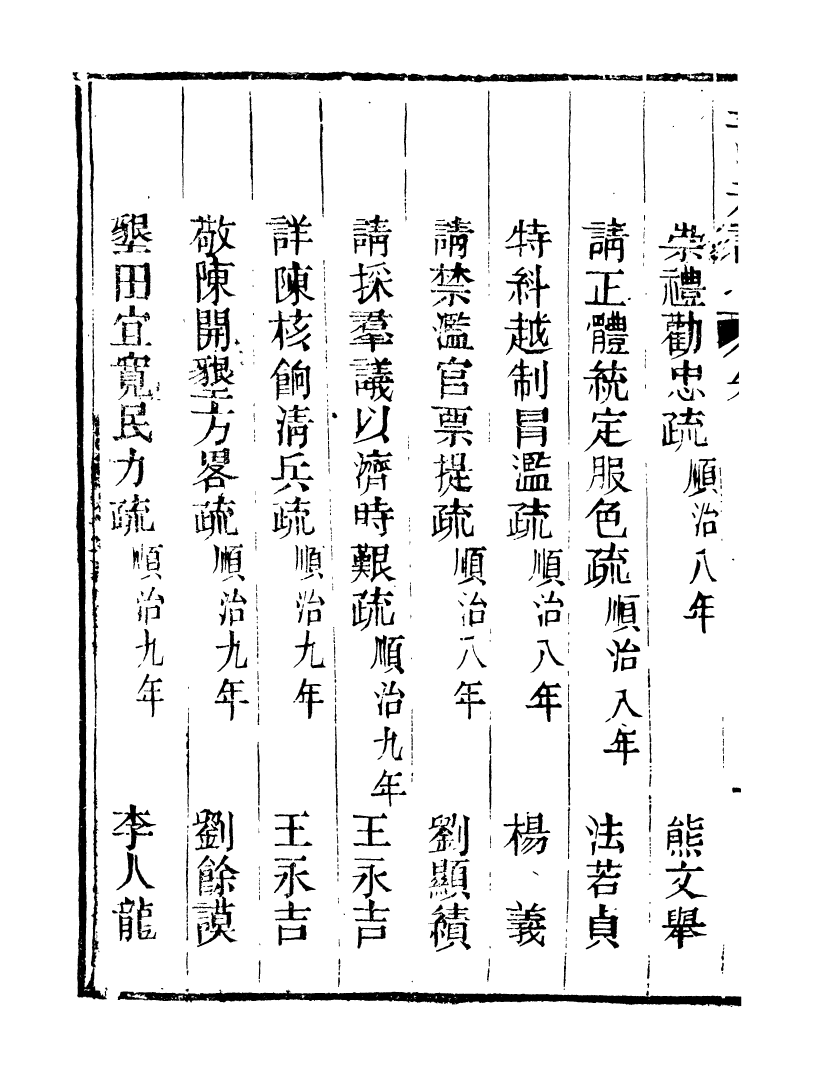 崇禮勸忠疏 順治八年 熊文舉
請正體統定服色疏 順治八年 法若貞
特糾越制冒濫疏 順治八年 楊義
請禁濫官票提疏 順治八年 劉顯績
請採羣議以濟時艱疏 順治九年 王永吉
詳陳核餉清兵疏 順治九年 王永吉
敬陳開墾方畧疏 順治九年 劉餘謨
墾田宜寬民力疏 順治九年 李人龍